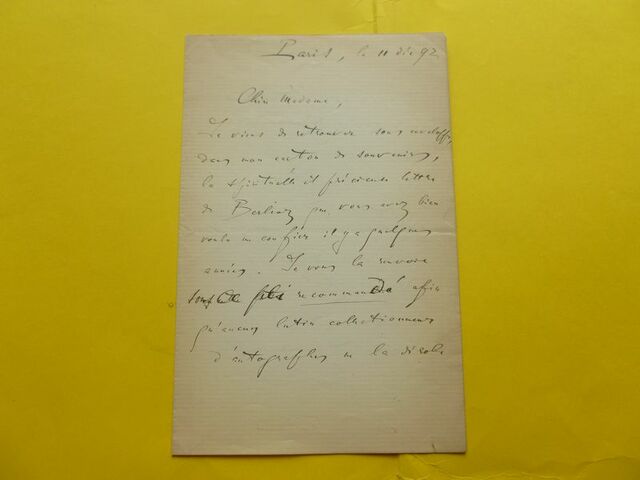 Paris, le 11 déc 92
Chère Madame,
Je viens de retrouver sous enveloppe,
dans mon carton de souvenirs,
la spirituelle et précieuse lettre
de Berlioz que vous avez bien
voulu me confier il y a quelques
années. Je vous la renvoie
sous ce pli recommandé afin
qu'aucun lutin collectionneur
d'autographes ne la dérobe